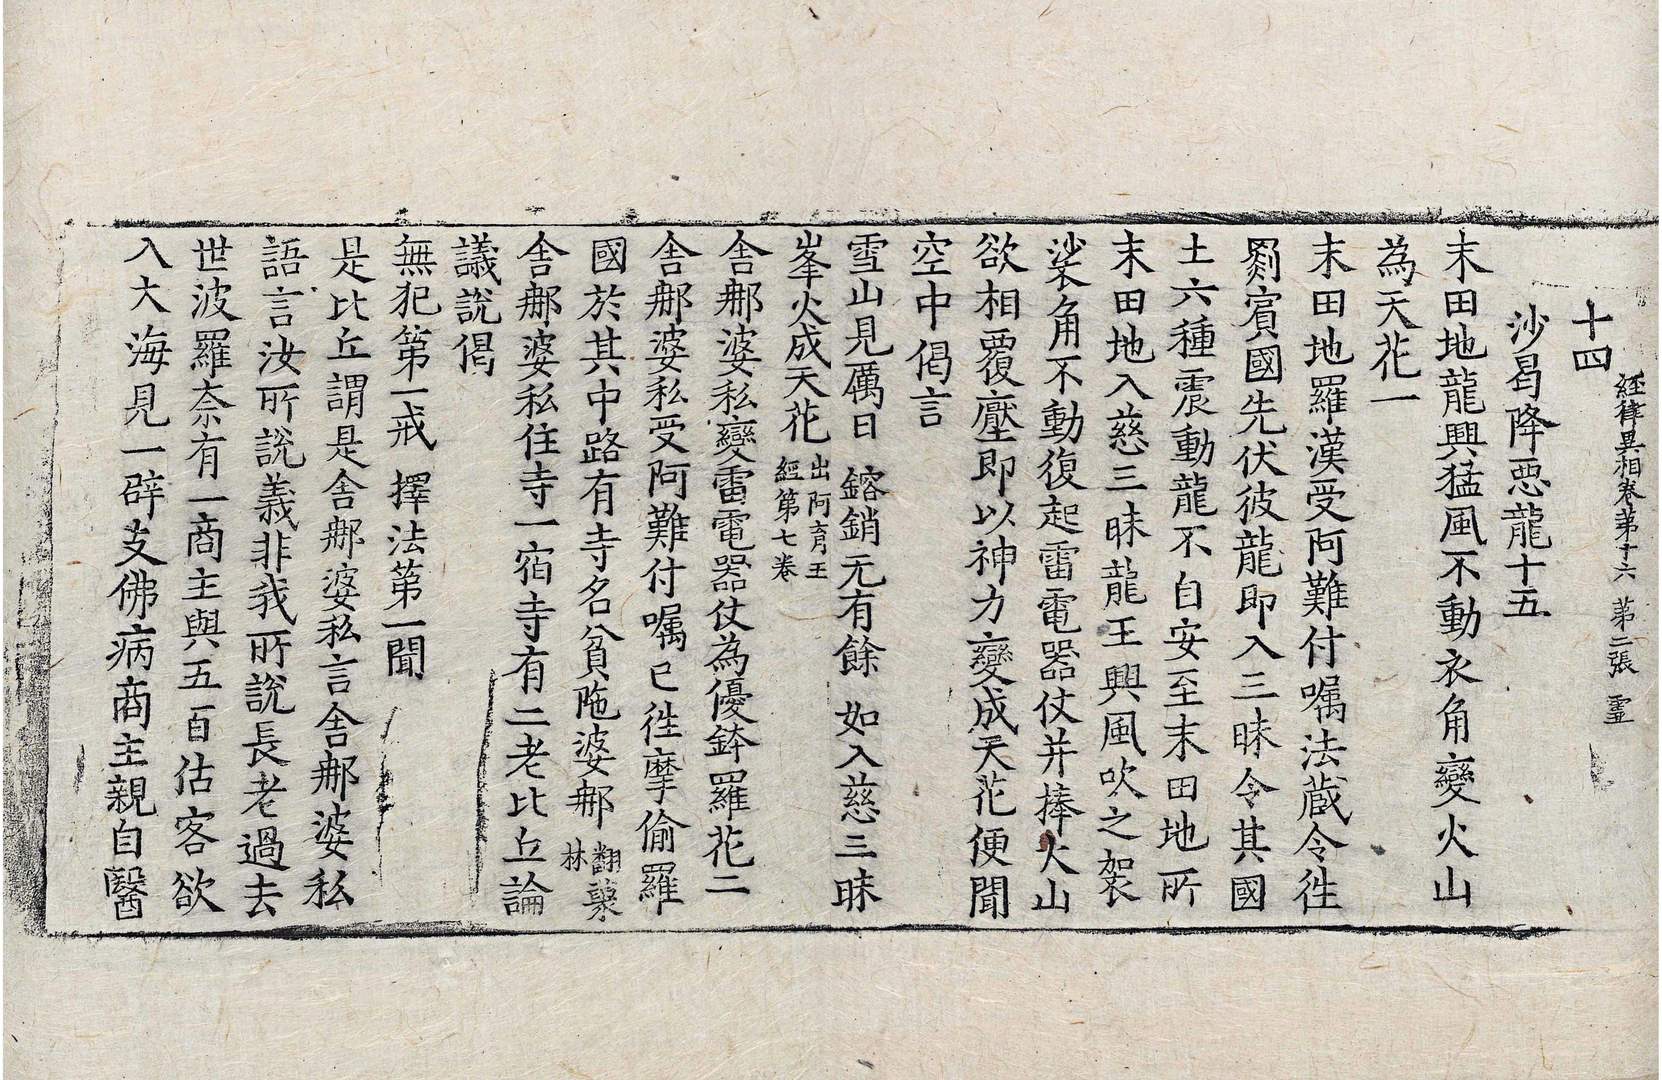 經律異相卷第十六 第二張 靈
十四
沙曷降惡龍十五
末田地龍興猛風不動衣角變火山
為天花一
末田地羅漢受阿難付囑法藏令徃
罽賓國先伏彼龍即入三昧令其國
土六種震動龍不自安至末田地所
末田地入慈三昧龍王興風吹之袈
裟角不動復起雷電器仗并捧火山
欲相覆壓即以神力變成天花便聞
空中偈言
雪山見厲日 鎔銷无有餘 如入慈三昧
峯火成天花 出阿育王
經第七卷
舍那婆私變雷電器仗為優鉢羅花二
舍那婆私受阿難付囑已徃摩偷羅
國於其中路有寺名貧陁婆那 翻藂
林
舍那婆私住寺一宿寺有二老比丘論
議說偈
無犯第一戒 擇法第一聞
是比丘謂是舍那婆私言舍那婆私
語言汝所說義非我所說長老過去
世波羅奈有一商主與五百估客欲
入大海見一辟支佛病商主親自醫